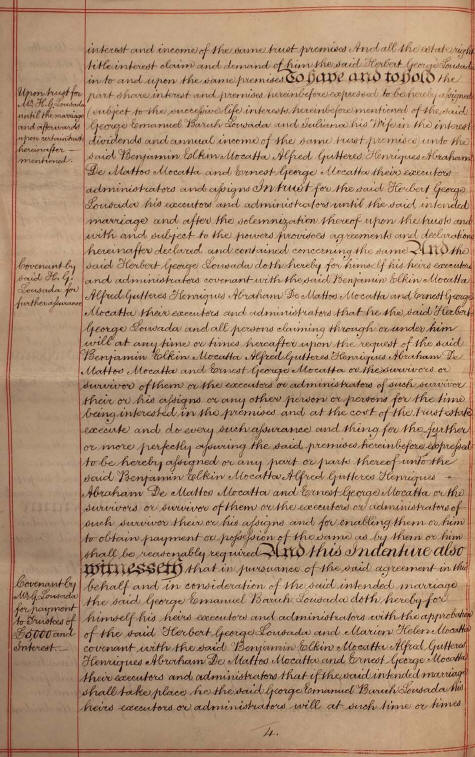 interest and income of the same trust premises And all the estate right
title interest claim and demand of him the said Herbert George Lousada
in to and upon the same premises To have and to hold the
part share interest and premises hereinbefore expressed to be hereby assigned
(subject to the successive life interests hereinbefore mentioned of the said
George Emanuel Baruh Lousada and Juliana his Wife in the interest
dividends and annual income of the same trust premises) unto the
said Benjamin Elkin Mocatta Alfred Gutteres Henriques Abraham
De Mattos Mocatta and Ernest George Mocatta their executors
administrators and assigns In trust for the said Herbert George
Lousada his executors and administrators until the said intended
marriage and after the solemnization thereof upon the trusts and
with and subject to the powers provisoes agreements and declarations
hereinafter declared and contained concerning the same And the
said Herbert George Lousada doth hereby for himself his heirs executors
and administrators covenant with the said Benjamin Elkin Mocatta
Alfred Gutteres Henriques Abraham De Mattos Mocatta and Ernest George
Mocatta their executors and administrators that he the said Herbert
George Lousada and all persons claiming through or under him
will at any time or times hereafter upon the request of the said
Benjamin Elkin Mocatta Alfred Gutteres Henriques Abraham De
Mattos Mocatta and Ernest George Mocatta or the survivors or
survivor of them or the executors or administrators of such survivor
their or his assigns or any other person or persons for the time
being interested in the premises and at the cost of the trust estate
execute and do every such assurance and thing for the further
or more perfectly assuring the said premises hereinbefore expressed
to be hereby assigned or any part or parts thereof unto the
said Benjamin Elkin Mocatta Alfred Gutteres Henriques
Abraham De Mattos Mocatta and Ernest George Mocatta or the
survivors or survivor of them or the executors or administrators of
such survivor their or his assigns and for enabling them or him
to obtain payment or possession of the same as by them or him
shall be reasonably required And this Indenture also
witnesseth that in pursuance of the said agreement in this
behalf and in consideration of the said intended marriage
the said George Emanuel Baruh Lousada doth hereby for
himself his heirs executors and administrators with the approbation
of the said Herbert George Lousada and Marian Helen Mocatta
covenant with the said Benjamin Elkin Mocatta Alfred Gutteres
Henriques Abraham De Mattos Mocatta and Ernest George Mocatta
their executors and administrators that if the said intended marriage
shall take place he the said George Emanuel Baruh Lousada his
heirs executors or administrators will at such time or times
4.
Upon trust for
Mr H. G. Lousada
until the marriage
and afterwards
upon certain trusts
hereinafter
mentioned.
Covenant by
said H. G.
Lousada for
further assurance
Covenant by
Mr G. Lousada
for payment
to Trustees of
£5000 and
Interest.